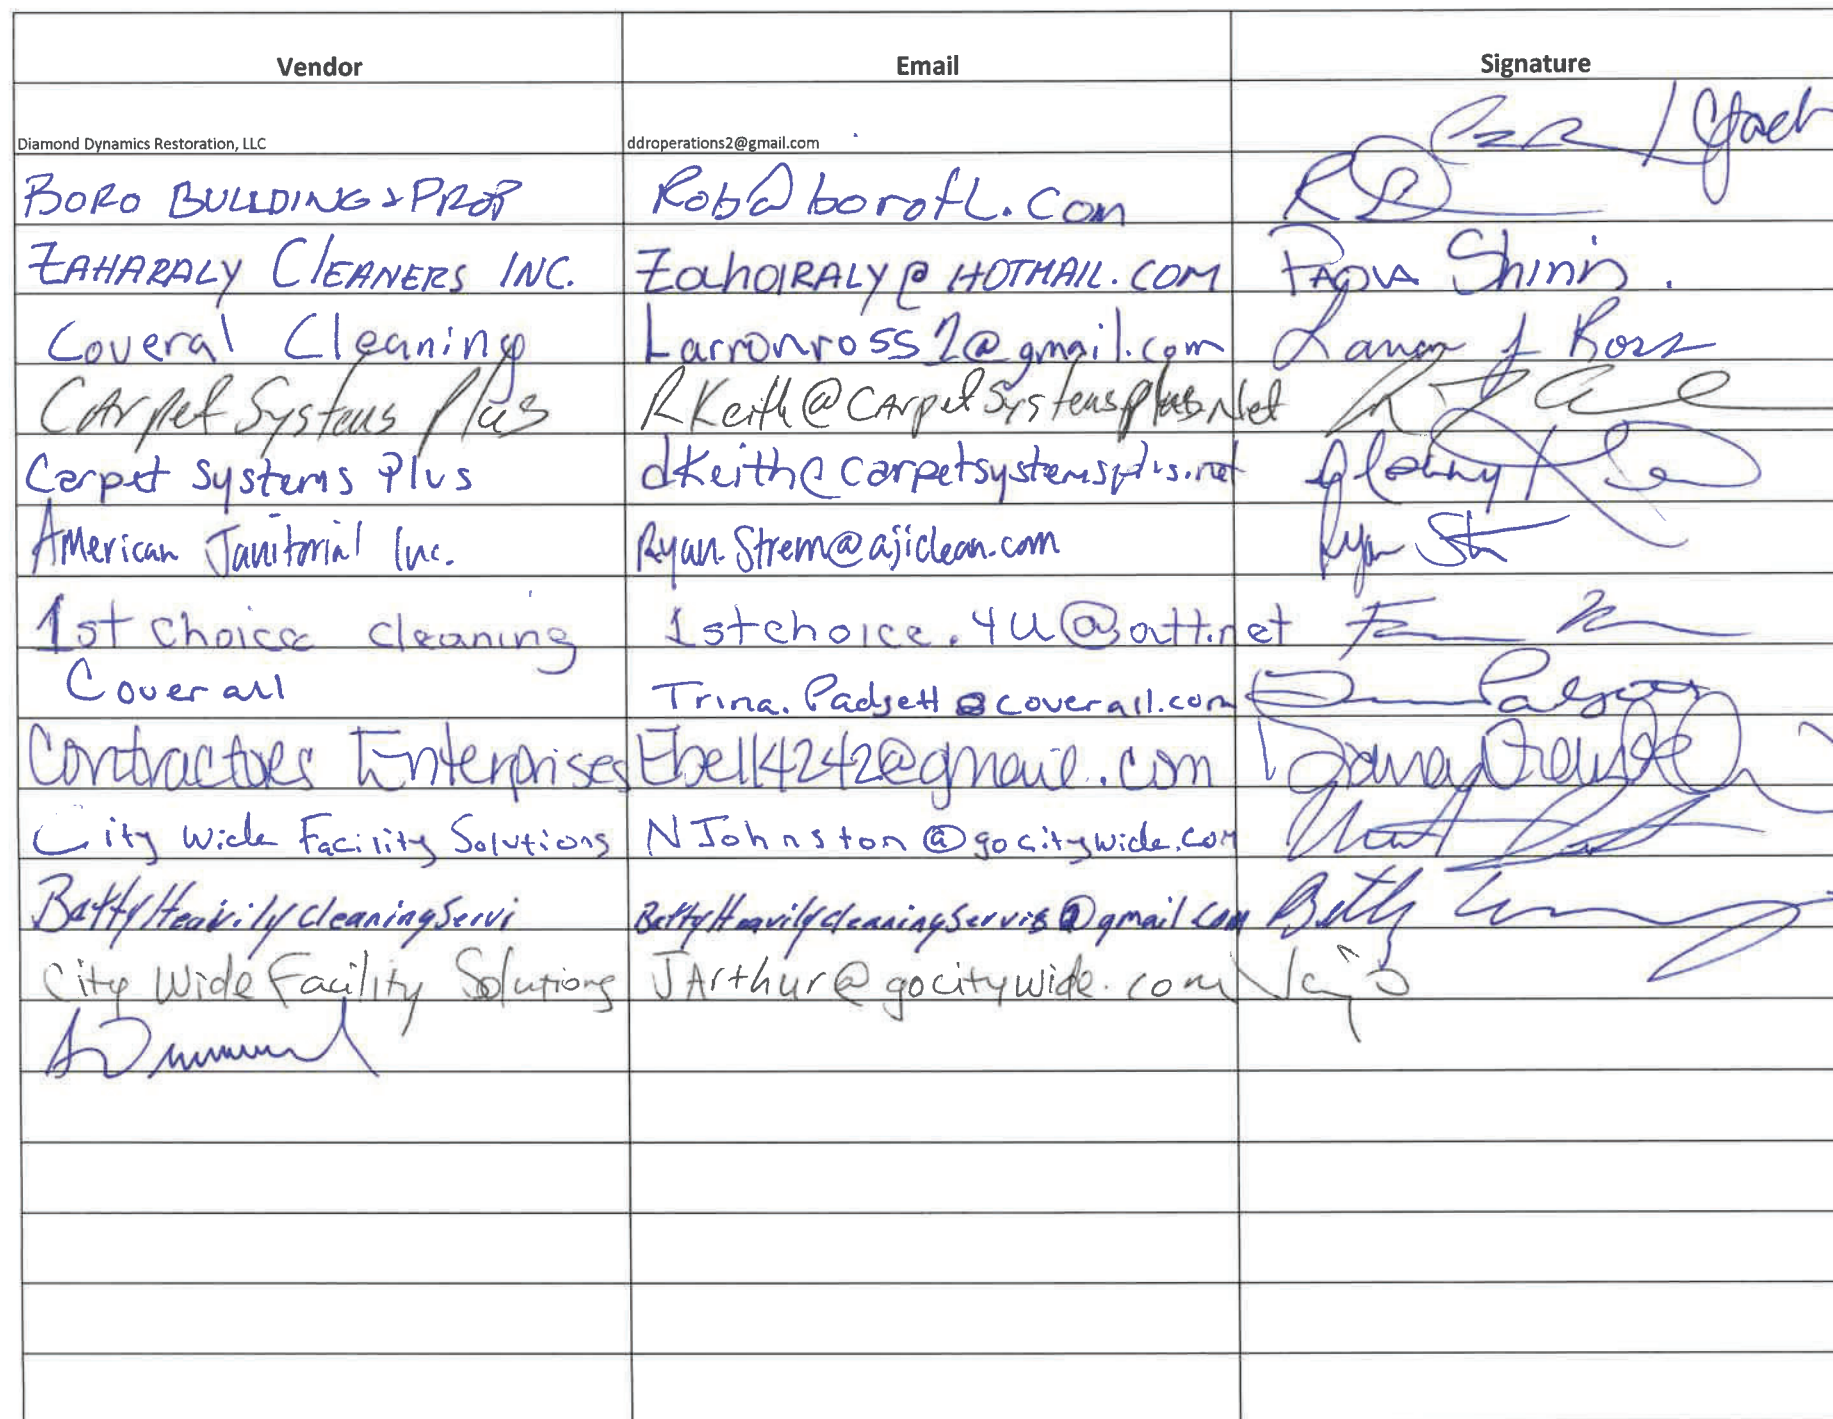 Vendor Email Signature
Diamond Dynamics Restoration, LLC ddroperations2@gmail.com
BORO BUILDING & PROP Rob@borofl.com
ZAHARALY CLEANERS INC. ZahaRALY@HOTMAIL.COM PAOVA Shinin.
Coveral Cleaning Larronross2@gmail.com Larron J Ross
CArpet Systems Plus RKeith@CArpetSystemsplus.Net
Carpet Systems Plus dkeith@carpetsystemsplus.net
American Janitorial Inc. Ryan.Strem@ajiclean.com Ryan St
1st choice cleaning 1stchoice.4U@att.net
Coverall Trina.Padgett@coverall.com Padgett
Contractors Enterprises Ebell4242@gmail.com
City Wide Facility Solutions NJohnston@gocitywide.com
BettyHeavilycleaningServi BettyHeavilycleaningservis@gmail.com Betty
City Wide Facility Solutions JArthur@gocitywide.com